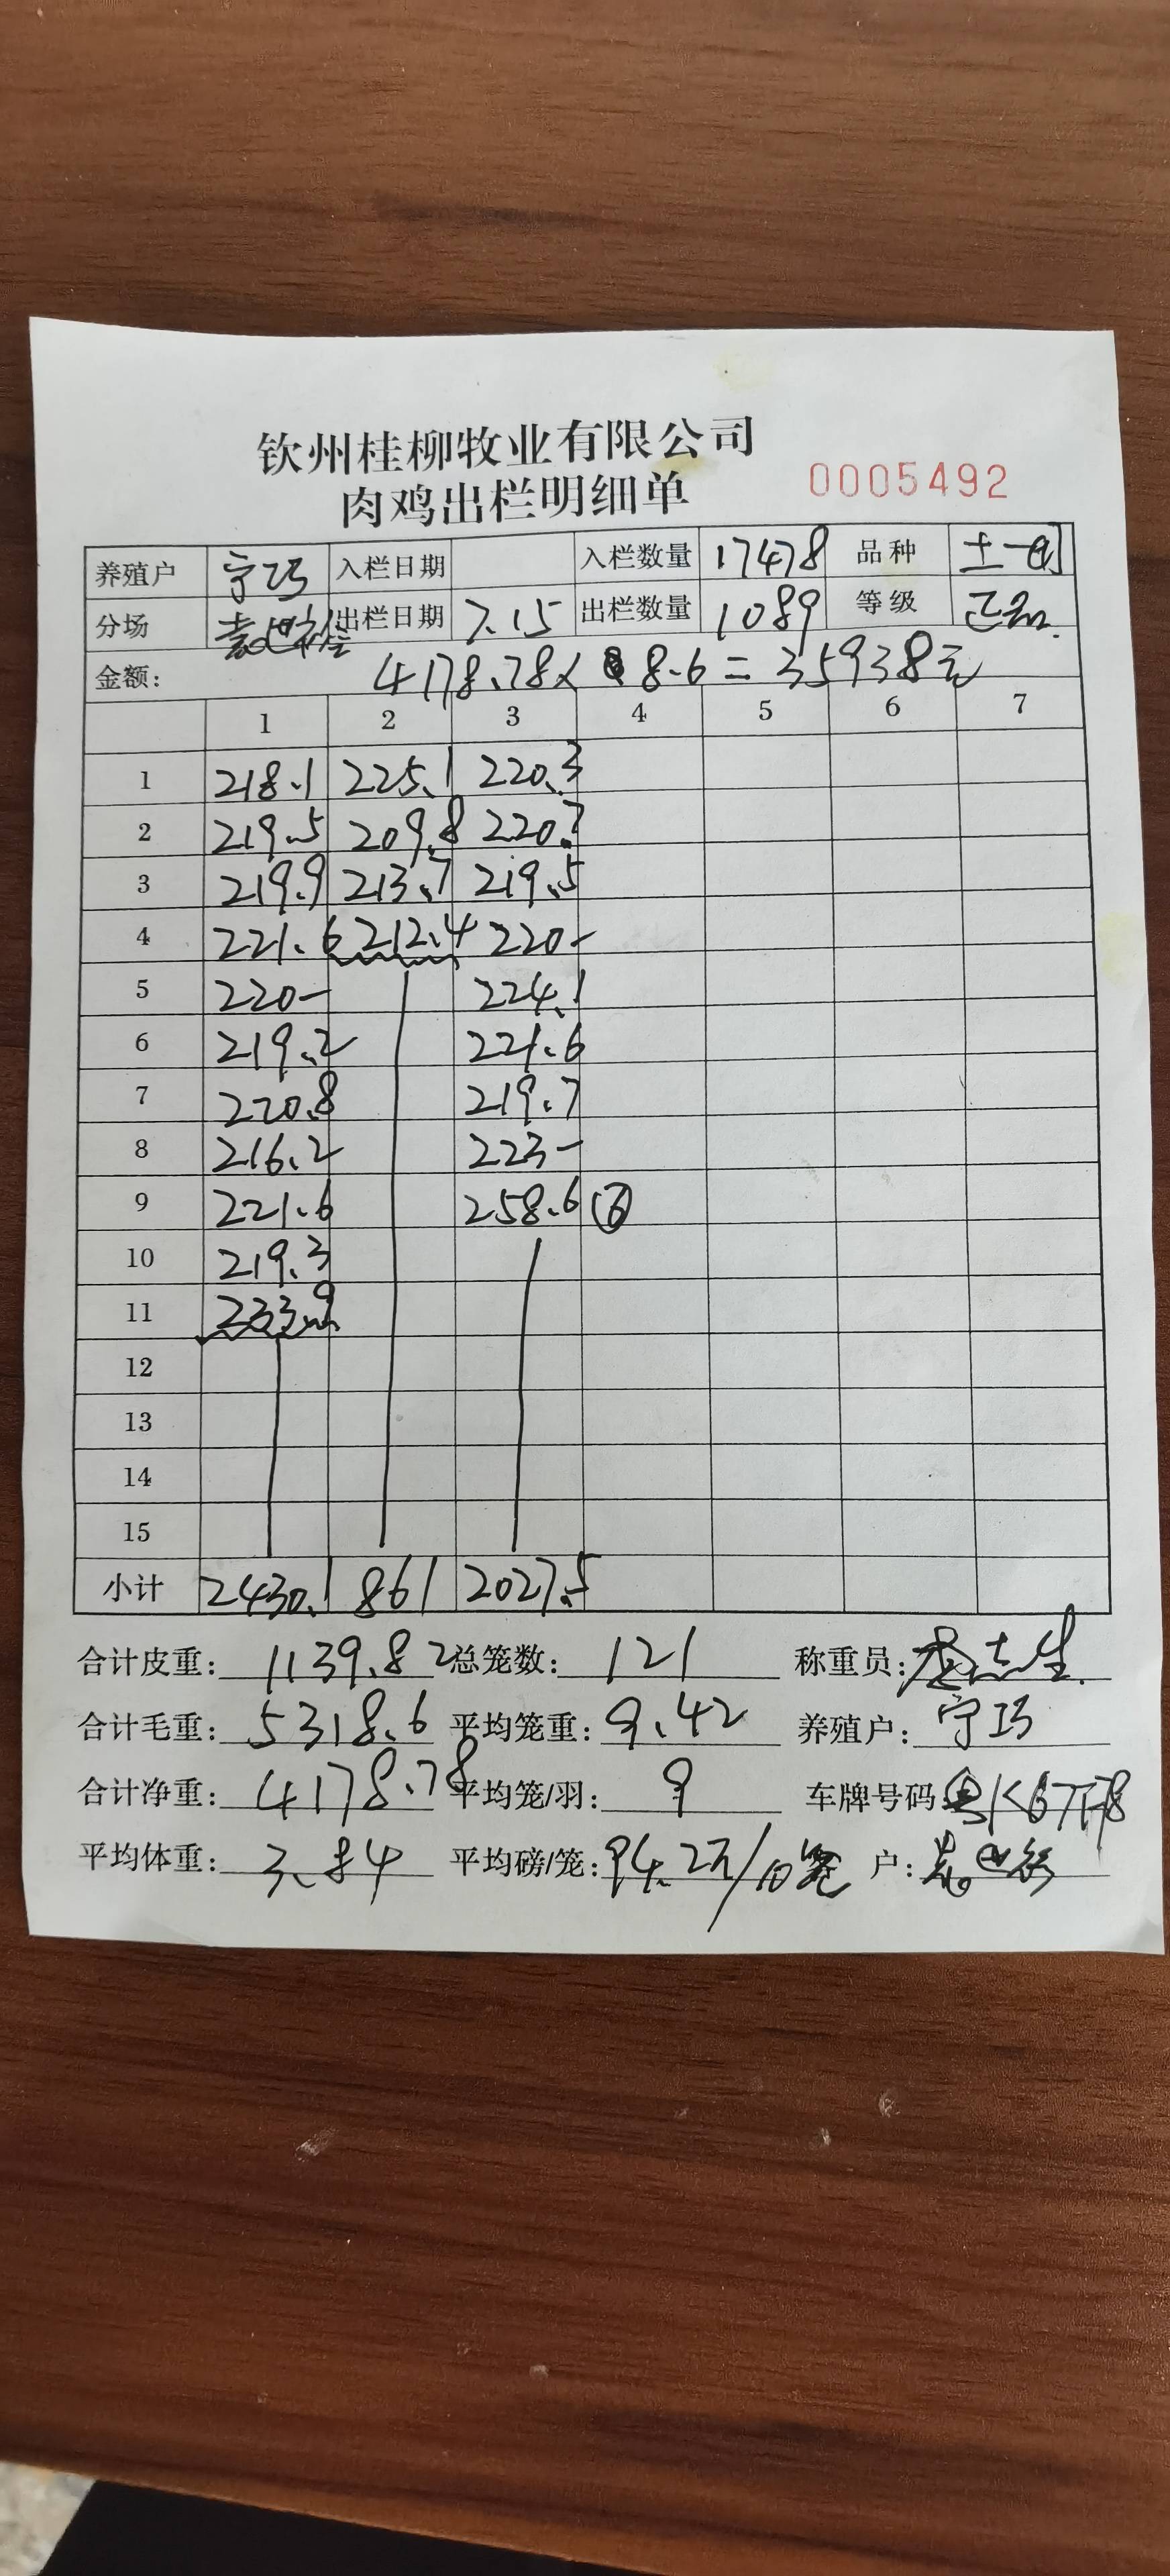 钦州桂柳牧业有限公司
肉鸡出栏明细单 0005492
养殖户 宁巧 入栏日期 入栏数量 17478 品种 土一
分场 出栏日期 7.15 出栏数量 1089 等级 正品.
金额: 4178.78× 8.6=35938元
1 2 3 4 5 6 7
1 218.1 225.1 220.3
2 219.5 209.8 220.7
3 219.9 213.7 219.5
4 221.6 212.4 220-
5 220- 224.1
6 219.2 221.6
7 220.8 219.7
8 216.2 223-
9 221.6 258.6
10 219.3
11 233.9
12
13
14
15
小计 2430.1 861 2027.5
合计皮重: 1139.82 总笼数: 121 称重员: 志生
合计毛重: 5318.6 平均笼重: 9.42 养殖户: 宁巧
合计净重: 4178.78 平均笼/羽: 9 车牌号码 粤K67F78
平均体重: 3.84 平均磅/笼: 94.2斤/10笼 户: